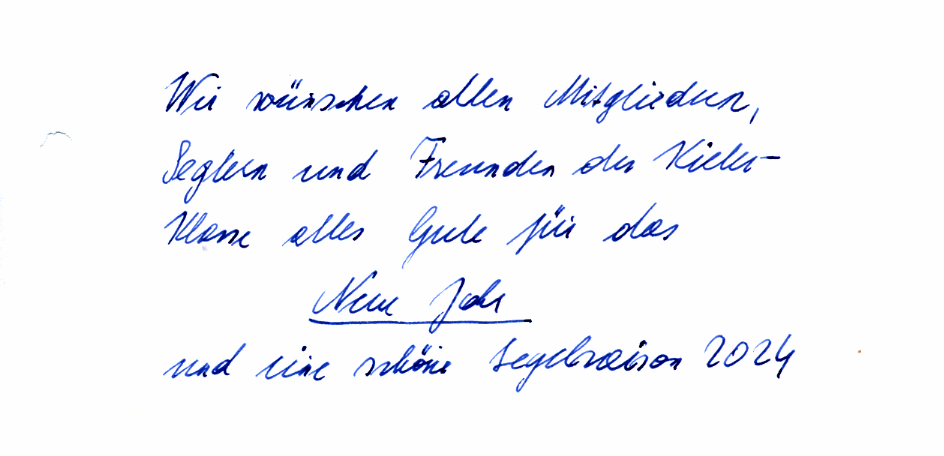 Wir wünschen allen Mitgliedern,
Seglern und Freunden der Kieler-
Klasse alles Gute für das
Neue Jahr
und eine schöne Segelsaison 2024